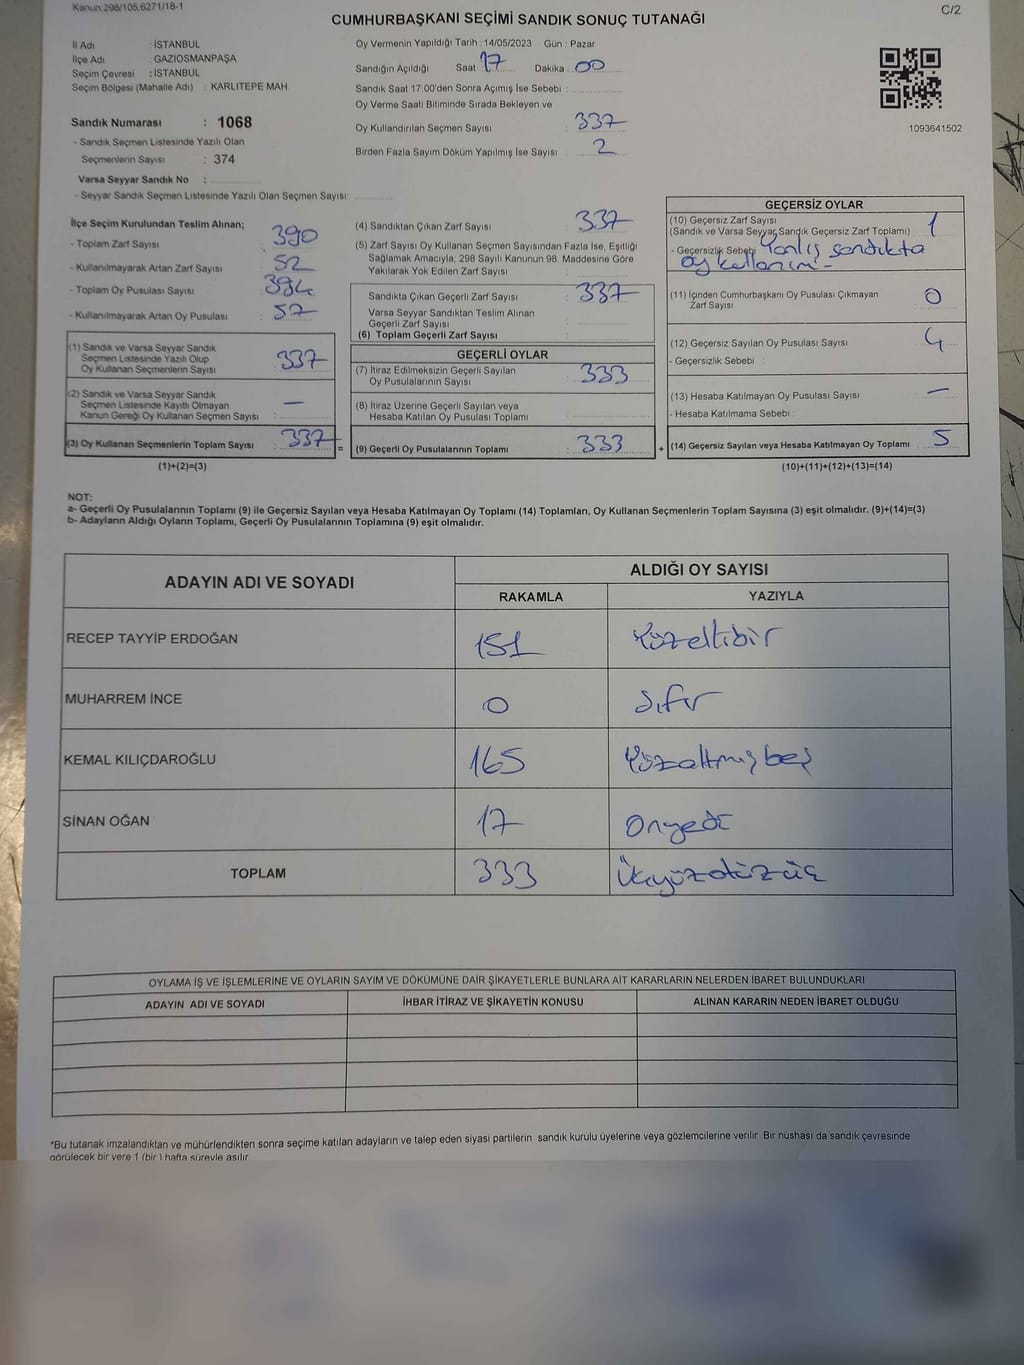 Kanun,298/105,6271/18-1
C/2
CUMHURBAŞKANI SEÇİMİ SANDIK SONUÇ TUTANAĞI
İl Adı : İSTANBUL
İlçe Adı : GAZİOSMANPAŞA
Seçim Çevresi : İSTANBUL
Seçim Bölgesi (Mahalle Adı) : KARLITEPE MAH.
Sandık Numarası : 1068
- Sandık Seçmen Listesinde Yazılı Olan
Seçmenlerin Sayısı : 374
Varsa Seyyar Sandık No :
- Seyyar Sandık Seçmen Listesinde Yazılı Olan Seçmen Sayısı:
Oy Vermenin Yapıldığı Tarih : 14/05/2023 Gün : Pazar
Sandığın Açıldığı Saat 17 Dakika : 00
Sandık Saat 17:00'den Sonra Açımış İse Sebebi :
Oy Verme Saati Bitiminde Sırada Bekleyen ve
Oy Kullandırılan Seçmen Sayısı : 337
Birden Fazla Sayım Döküm Yapılmış İse Sayısı : 2
1093641502
İlçe Seçim Kurulundan Teslim Alınan;
- Toplam Zarf Sayısı : 390
- Kullanılmayarak Artan Zarf Sayısı : 52
- Toplam Oy Pusulası Sayısı : 394
- Kullanılmayarak Artan Oy Pusulası : 57
(1) Sandık ve Varsa Seyyar Sandık
Seçmen Listesinde Yazılı Olup
Oy Kullanan Seçmenlerin Sayısı : 337
(2) Sandık ve Varsa Seyyar Sandık
Seçmen Listesinde Kayıtlı Olmayan
Kanun Gereği Oy Kullanan Seçmen Sayısı : —
(3) Oy Kullanan Seçmenlerin Toplam Sayısı : 337
(1)+(2)=(3)
=
(4) Sandıktan Çıkan Zarf Sayısı : 337
(5) Zarf Sayısı Oy Kullanan Seçmen Sayısından Fazla İse, Eşitliği
Sağlamak Amacıyla, 298 Sayılı Kanunun 98. Maddesine Göre
Yakılarak Yok Edilen Zarf Sayısı :
Sandıkta Çıkan Geçerli Zarf Sayısı : 337
Varsa Seyyar Sandıktan Teslim Alınan
Geçerli Zarf Sayısı :
(6) Toplam Geçerli Zarf Sayısı :
GEÇERLİ OYLAR
(7) İtiraz Edilmeksizin Geçerli Sayılan
Oy Pusulalarının Sayısı : 333
(8) İtiraz Üzerine Geçerli Sayılan veya
Hesaba Katılan Oy Pusulası Toplamı :
(9) Geçerli Oy Pusulalarının Toplamı : 333
+
GEÇERSİZ OYLAR
(10) Geçersiz Zarf Sayısı
(Sandık ve Varsa Seyyar Sandık Geçersiz Zarf Toplamı) : 1
- Geçersizlik Sebebi Yanlış sandıkta
oy kullanımı -
(11) İçinden Cumhurbaşkanı Oy Pusulası Çıkmayan
Zarf Sayısı : 0
(12) Geçersiz Sayılan Oy Pusulası Sayısı : 4
- Geçersizlik Sebebi :
(13) Hesaba Katılmayan Oy Pusulası Sayısı : —
- Hesaba Katılmama Sebebi :
(14) Geçersiz Sayılan veya Hesaba Katılmayan Oy Toplamı : 5
(10)+(11)+(12)+(13)=(14)
NOT:
a- Geçerli Oy Pusulalarının Toplamı (9) ile Geçersiz Sayılan veya Hesaba Katılmayan Oy Toplamı (14) Toplamları, Oy Kullanan Seçmenlerin Toplam Sayısına (3) eşit olmalıdır. (9)+(14)=(3)
b- Adayların Aldığı Oyların Toplamı, Geçerli Oy Pusulalarının Toplamına (9) eşit olmalıdır.
ADAYIN ADI VE SOYADI ALDIĞI OY SAYISI
RAKAMLA YAZIYLA
RECEP TAYYİP ERDOĞAN 151 Yüzellibir
MUHARREM İNCE 0 Sıfır
KEMAL KILIÇDAROĞLU 165 Yüzaltmışbeş
SİNAN OĞAN 17 Onyedi
TOPLAM 333 Üçyüzotuzüç
OYLAMA İŞ VE İŞLEMLERİNE VE OYLARIN SAYIM VE DÖKÜMÜNE DAİR ŞİKAYETLERLE BUNLARA AİT KARARLARIN NELERDEN İBARET BULUNDUKLARI
ADAYIN ADI VE SOYADI İHBAR İTİRAZ VE ŞİKAYETİN KONUSU ALINAN KARARIN NEDEN İBARET OLDUĞU
*Bu tutanak imzalandıktan ve mühürlendikten sonra seçime katılan adayların ve talep eden siyasi partilerin sandık kurulu üyelerine veya gözlemcilerine verilir. Bir nüshası da sandık çevresinde
görülecek bir yere 1 (bir ) hafta süreyle asılır